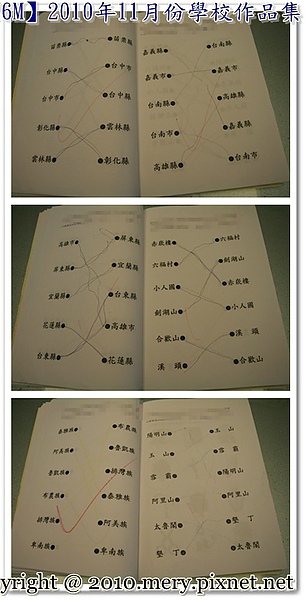 6M】2010年11月份學校作品集
苗栗縣 苗栗縣
台中縣 台中市
台中市 台中縣
彰化縣 雲林縣
雲林縣 彰化縣
嘉義縣 台南縣
嘉義市 台南市
台南縣 高雄縣
台南市 嘉義縣
高雄縣 台南市
高雄市 屏東縣
屏東縣 宜蘭縣
宜蘭縣 台東縣
花蓮縣 高雄市
台東縣 花蓮縣
赤崁樓 六福村
六福村 劍湖山
小人國 赤崁樓
劍湖山 小人國
合歡山 溪頭
溪頭 合歡山
泰雅族 布農族
阿美族 魯凱族
魯凱族 排灣族
布農族 泰雅族
排灣族 阿美族
卑南族 卑南族
陽明山 玉山
玉山 雪霸
雪霸 陽明山
阿里山 阿里山
太魯閣 墾丁
墾丁 太魯閣
yright @ 2010.mery.pixnet.net